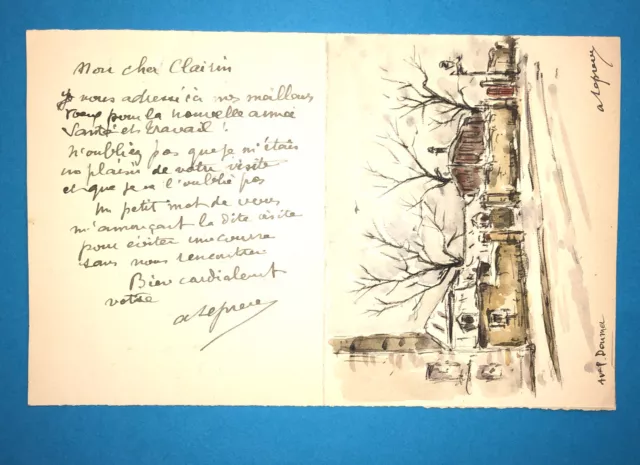 Mon cher Clairin
Je vous adresse ici nos meilleurs
voeux pour la nouvelle année
Santé et travail !
N'oubliez pas que je m'étais
un plaisir de votre visite
et que je ne l'oublie pas
Un petit mot de vous
m'annonçant la dite visite
pour éviter une course
sans nous rencontrer
Bien cordialement
votre
aLeprou
aLeprou
Av P. Doumer